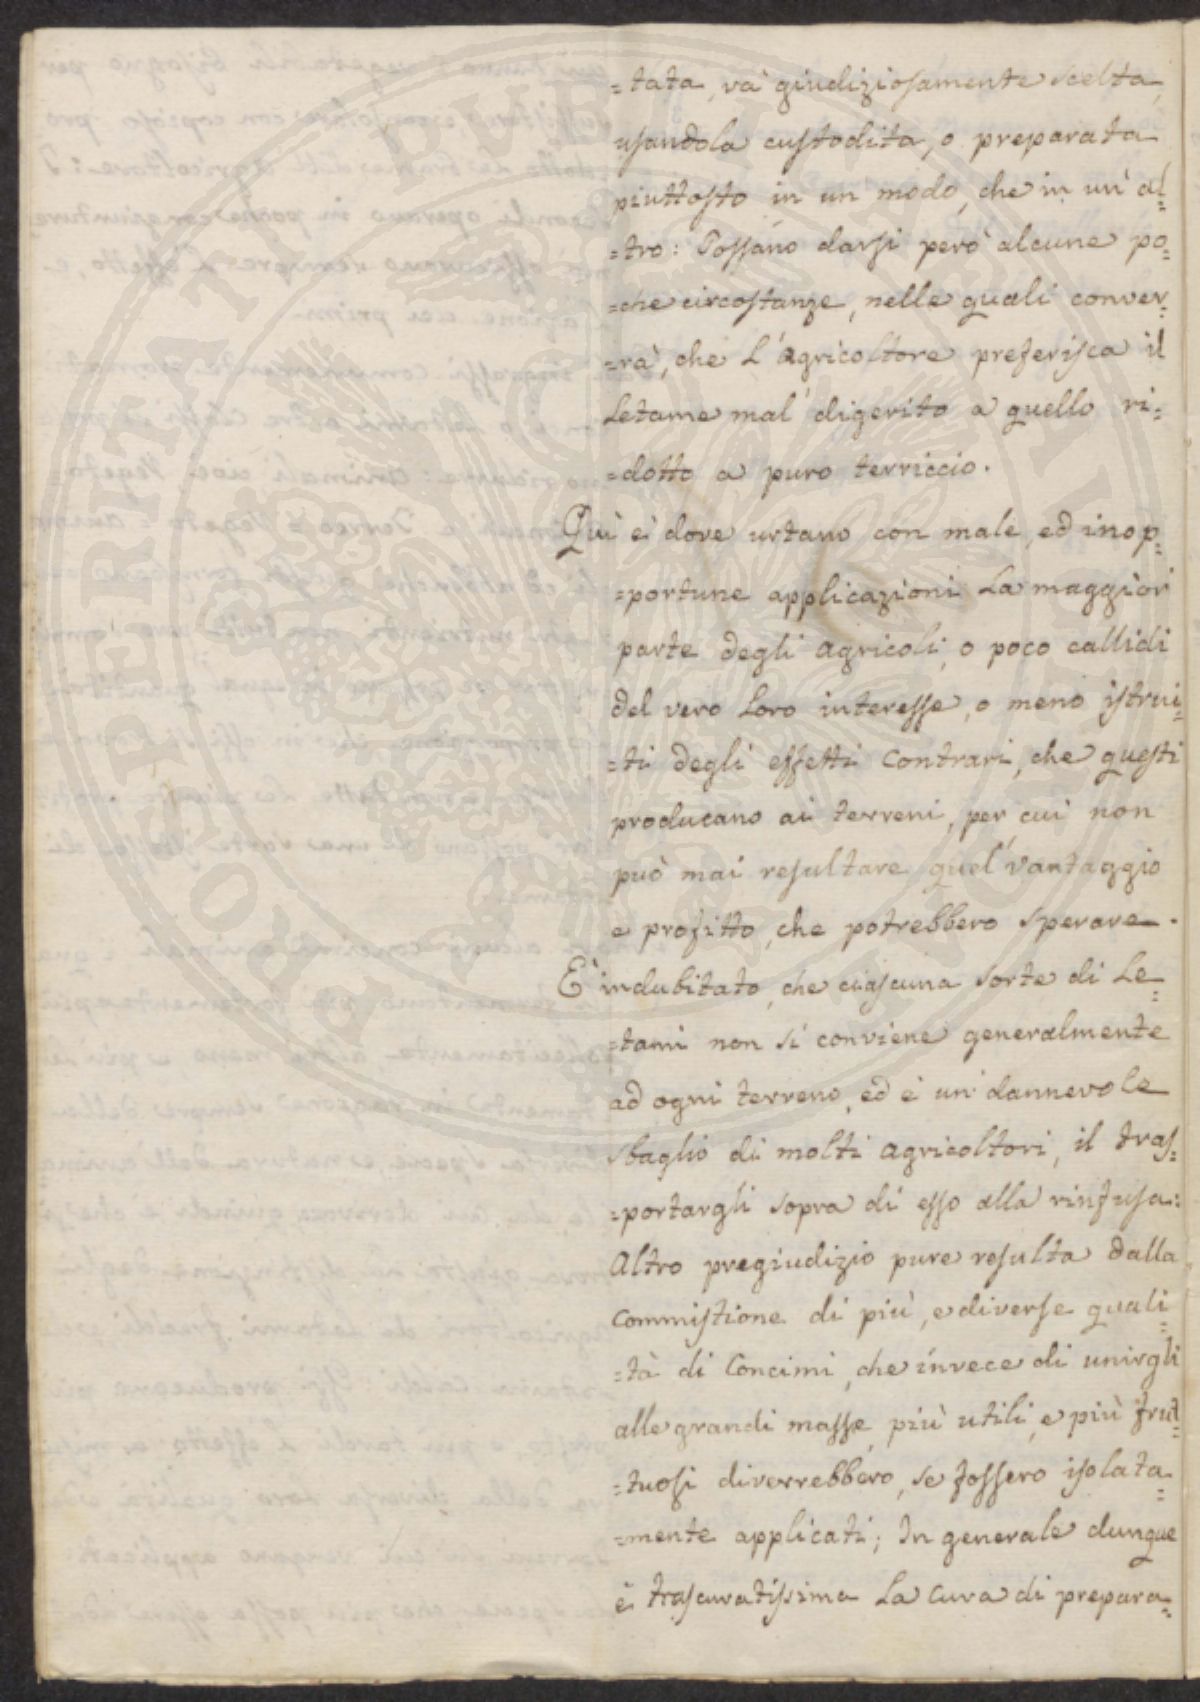 =tata, và giudiziosamente scelta,
usandola custodita, o preparata
piuttosto in un modo, che in un' al=
=tro: Possano darsi però alcune po=
=che circostanze, nelle quali conver=
=rà, che L'agricoltore preferisca il
Letame mal digerito a quello ri=
=dotto a puro terriccio.
Quì è dove urtano con male, ed inop=
=portune applicazioni La maggior
parte degli agricoli, o poco callidi
del vero Loro interesse, o meno istrui=
=ti degli effetti contrari, che questi
producano ai terreni, per cui non
può mai resultare quel vantaggio
e profitto, che potrebbero sperare.
È indubitato, che ciascuna sorte di Le=
=tami non si conviene generalmente
ad ogni terreno, ed è un dannevole
sbaglio di molti agricoltori, il tras=
=portargli sopra di esso alla rinfusa:
Altro pregiudizio pure resulta dalla
Commistione di più, e diverse quali=
=tà di Concimi, che invece di unirgli
alle grandi masse, più utili, e più frut=
=tuosi diverrebbero, se fossero isolata=
=mente applicati; In generale dunque
è trascuratissima La cura di prepara=
PROSPERITATI PUBLICAE AUGENDAE